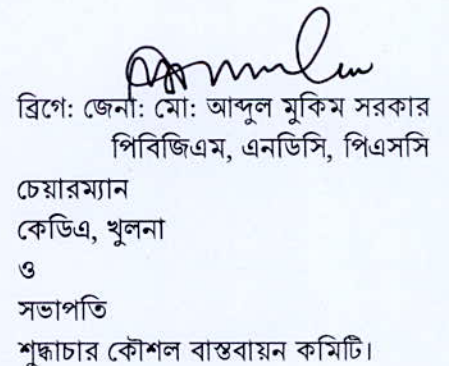 ব্রিগে: জেনা: মো: আব্দুল মুকিম সরকার
পিবিজিএম, এনডিসি, পিএসসি
চেয়ারম্যান
কেডিএ, খুলনা
ও
সভাপতি
শুদ্ধাচার কৌশল বাস্তবায়ন কমিটি।